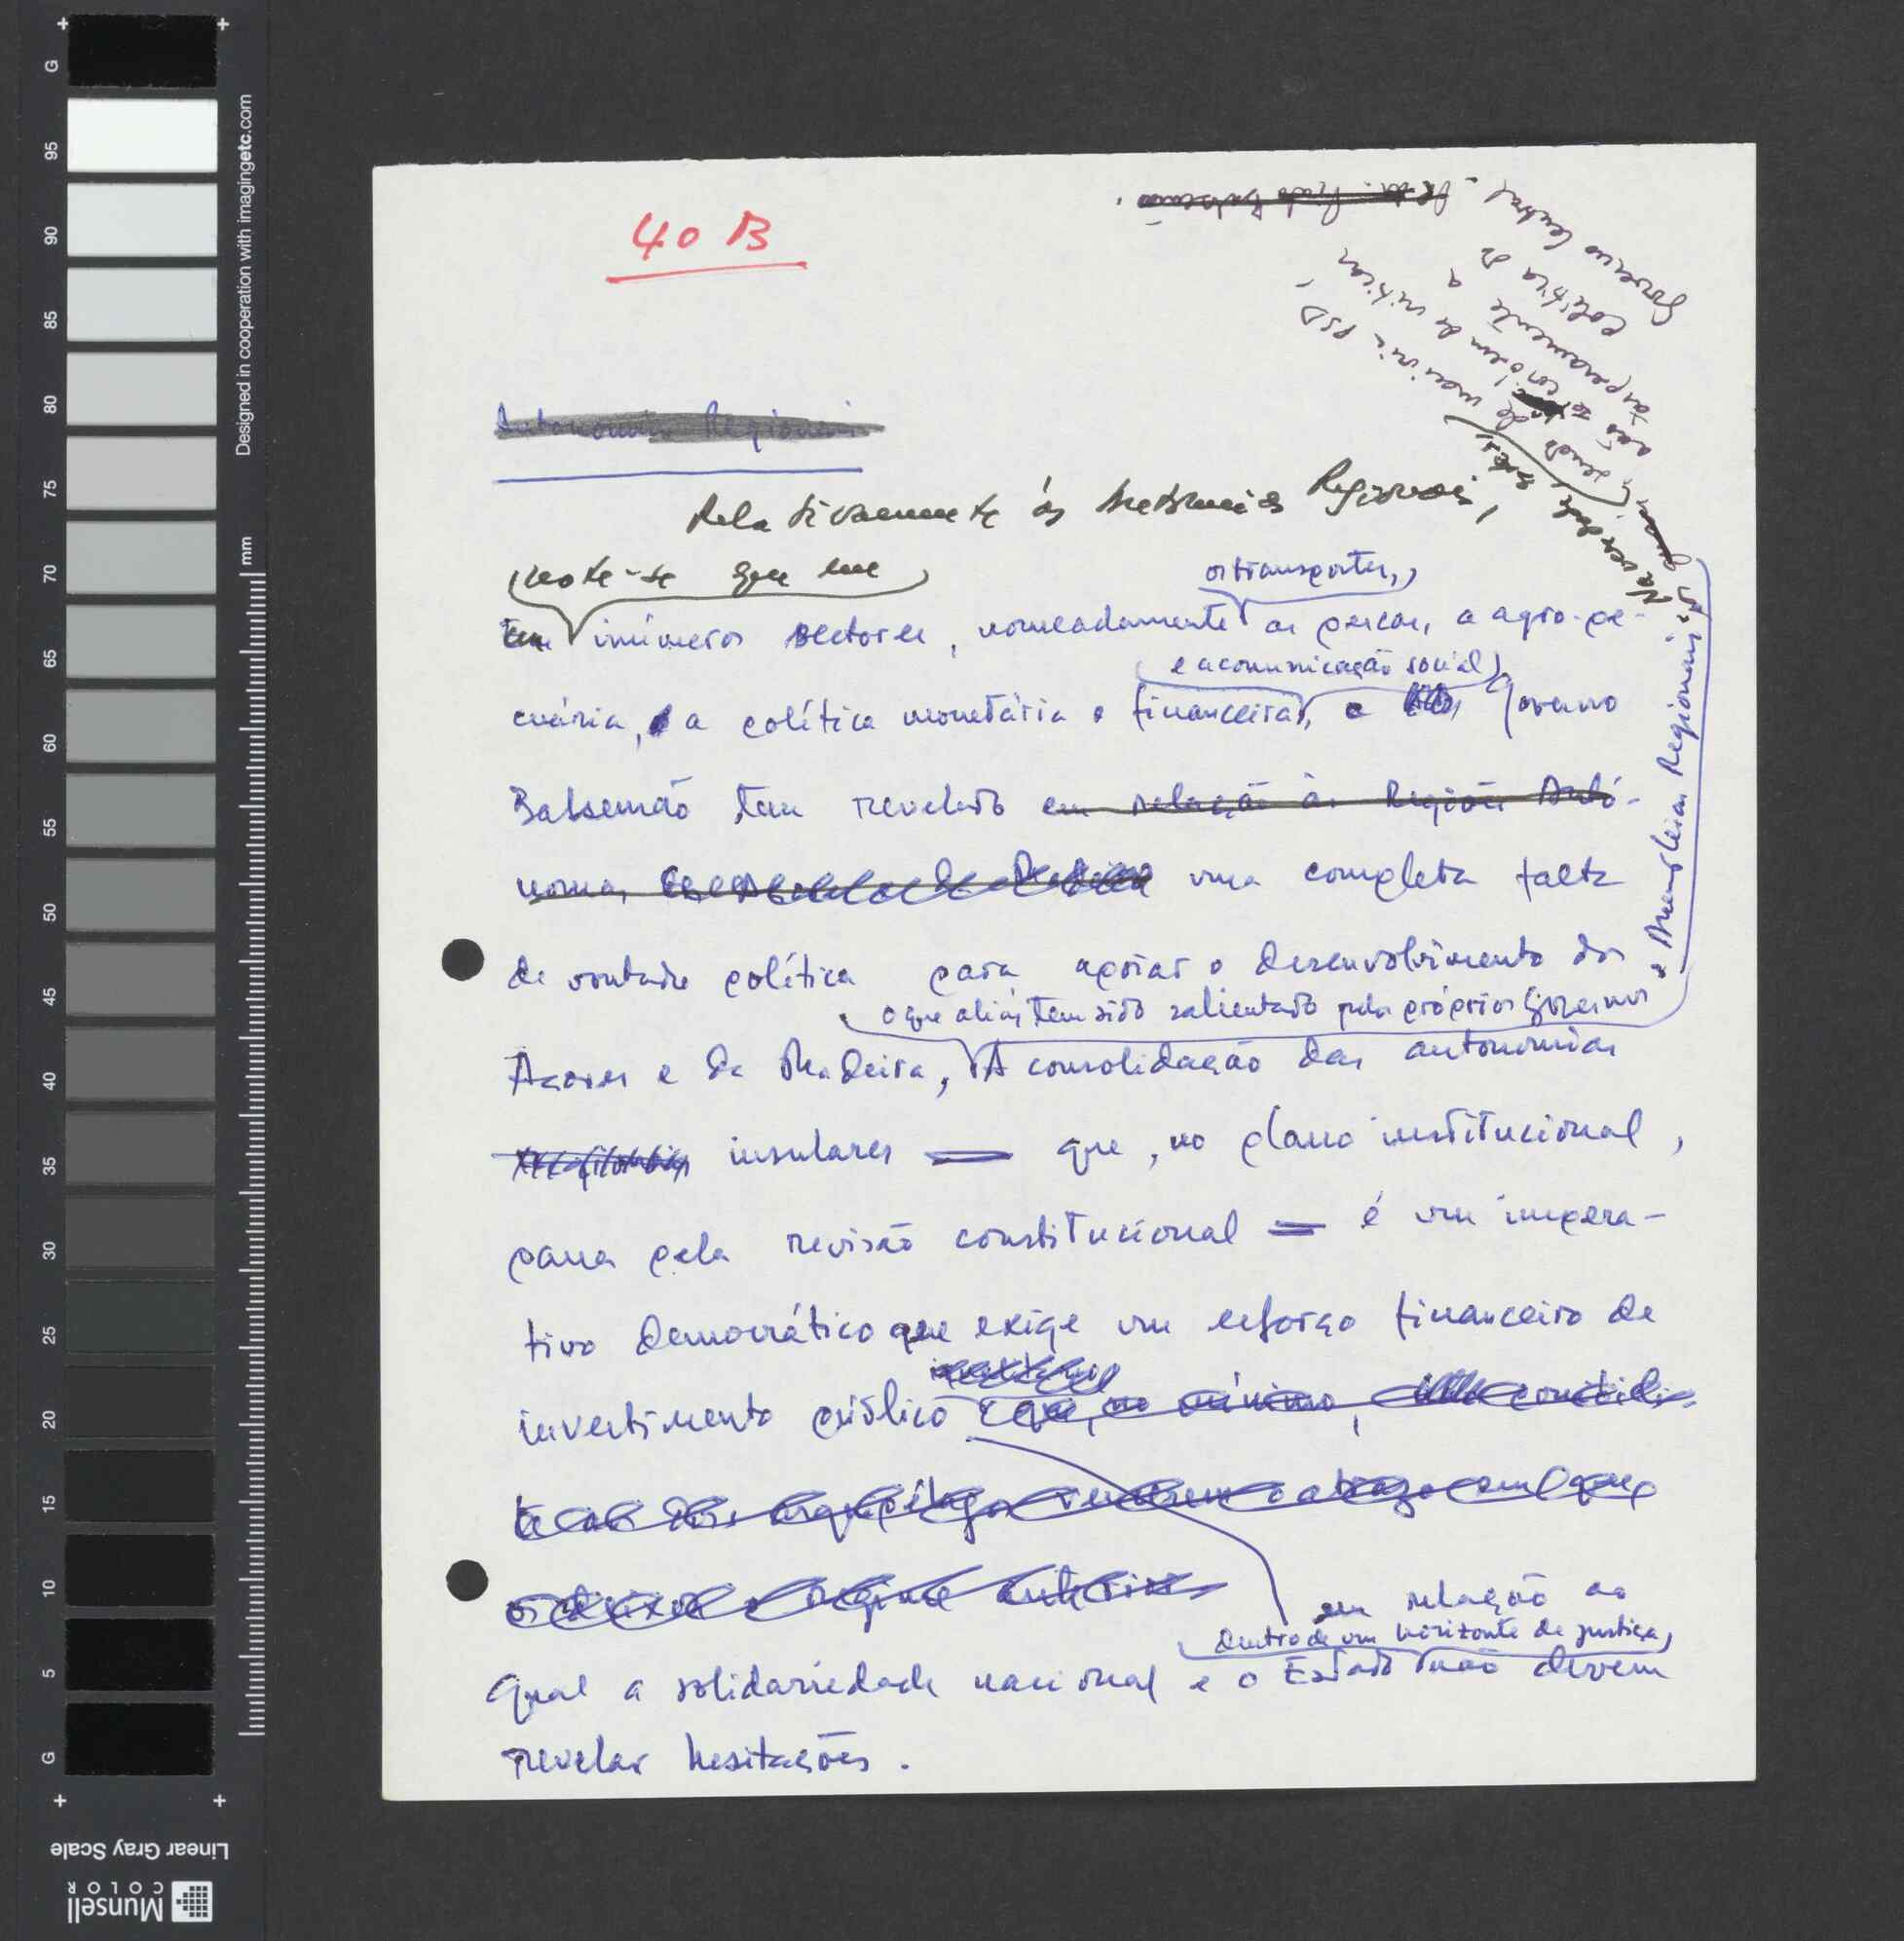 40 B
Autonomias Regionais
Relativamente às Autonomias Regionais,
note-se que em
os transportes,
em inúmeros sectores, nomeadamente as pescas, a agro-pe-
e a comunicação social,
cuária, a política monetária e financeira, o Governo
Balsemão tem revelado em relação às Regiões Autó-
nomas uma completa falta
de vontade política para apoiar o desenvolvimento dos
o que aliás tem sido salientado pelos próprios Governos
e Assembleias Regionais,
Açores e da Madeira, A consolidação das autonomias
insulares — que, no plano institucional,
passa pela revisão constitucional — é um impera-
tivo democrático que exige um esforço financeiro de
investimento público que, no mínimo,
em relação ao
dentro de um horizonte de justiça,
qual a solidariedade nacional e o Estado não devem
revelar hesitações.
sendo de maioria PSD,
não se coíbem de criticar
asperamente a
política do
Governo Central.
G 95 90 85 80 75 70 65 60 55 50 45 40 35 30 25 20 15 10 5 G
Designed in cooperation with imagingetc.com
mm
Linear Gray Scale
Munsell
COLOR